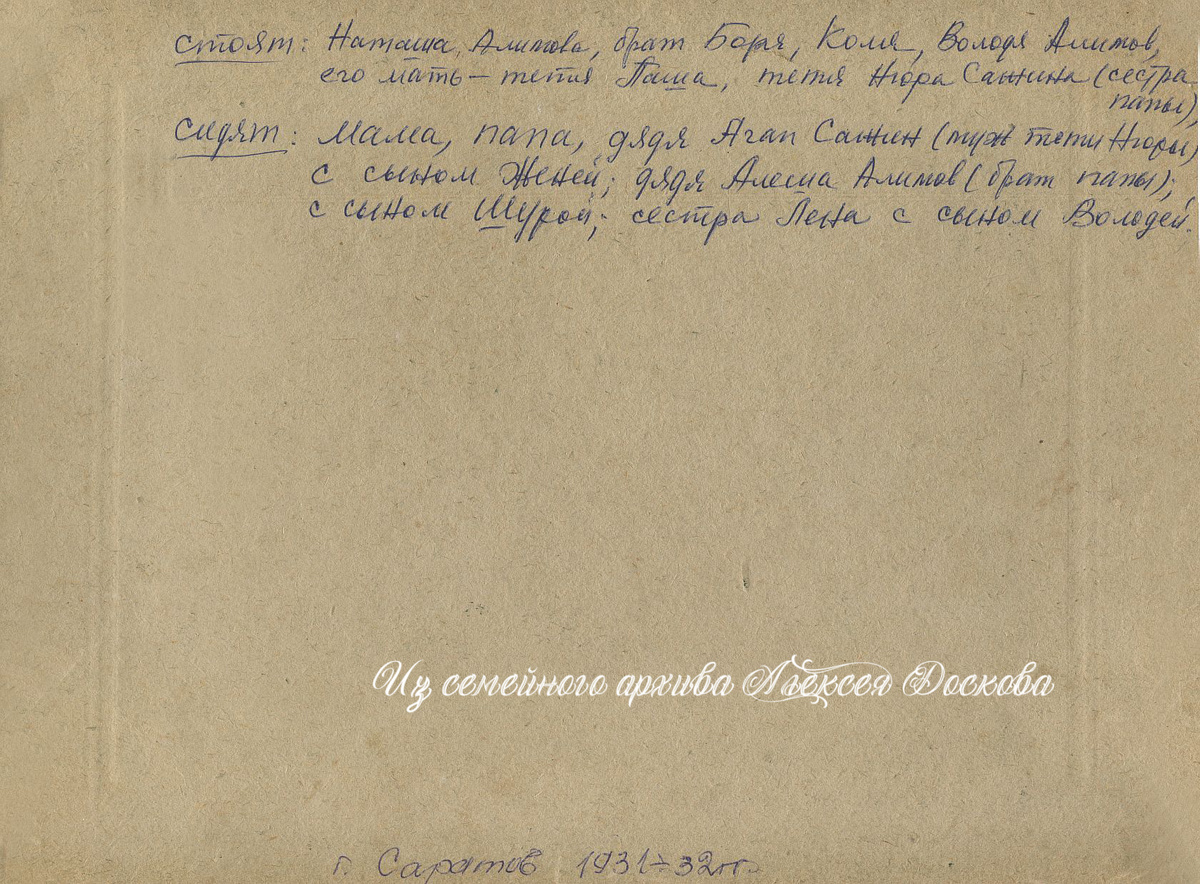 стоят: Наташа Алимова, брат Боря, Коля, Володя Алимов,
его мать – тётя Паша, тётя Нюра Санина (сестра
папы),
сидят: мама, папа, дядя Агап Санин (муж тёти Нюры)
с сыном Женей; дядя Алёша Алимов (брат папы);
с сыном Шурой; сестра Лена с сыном Володей.
Из семейного архива Алексея Доскова
г. Саратов 1931-32гг.